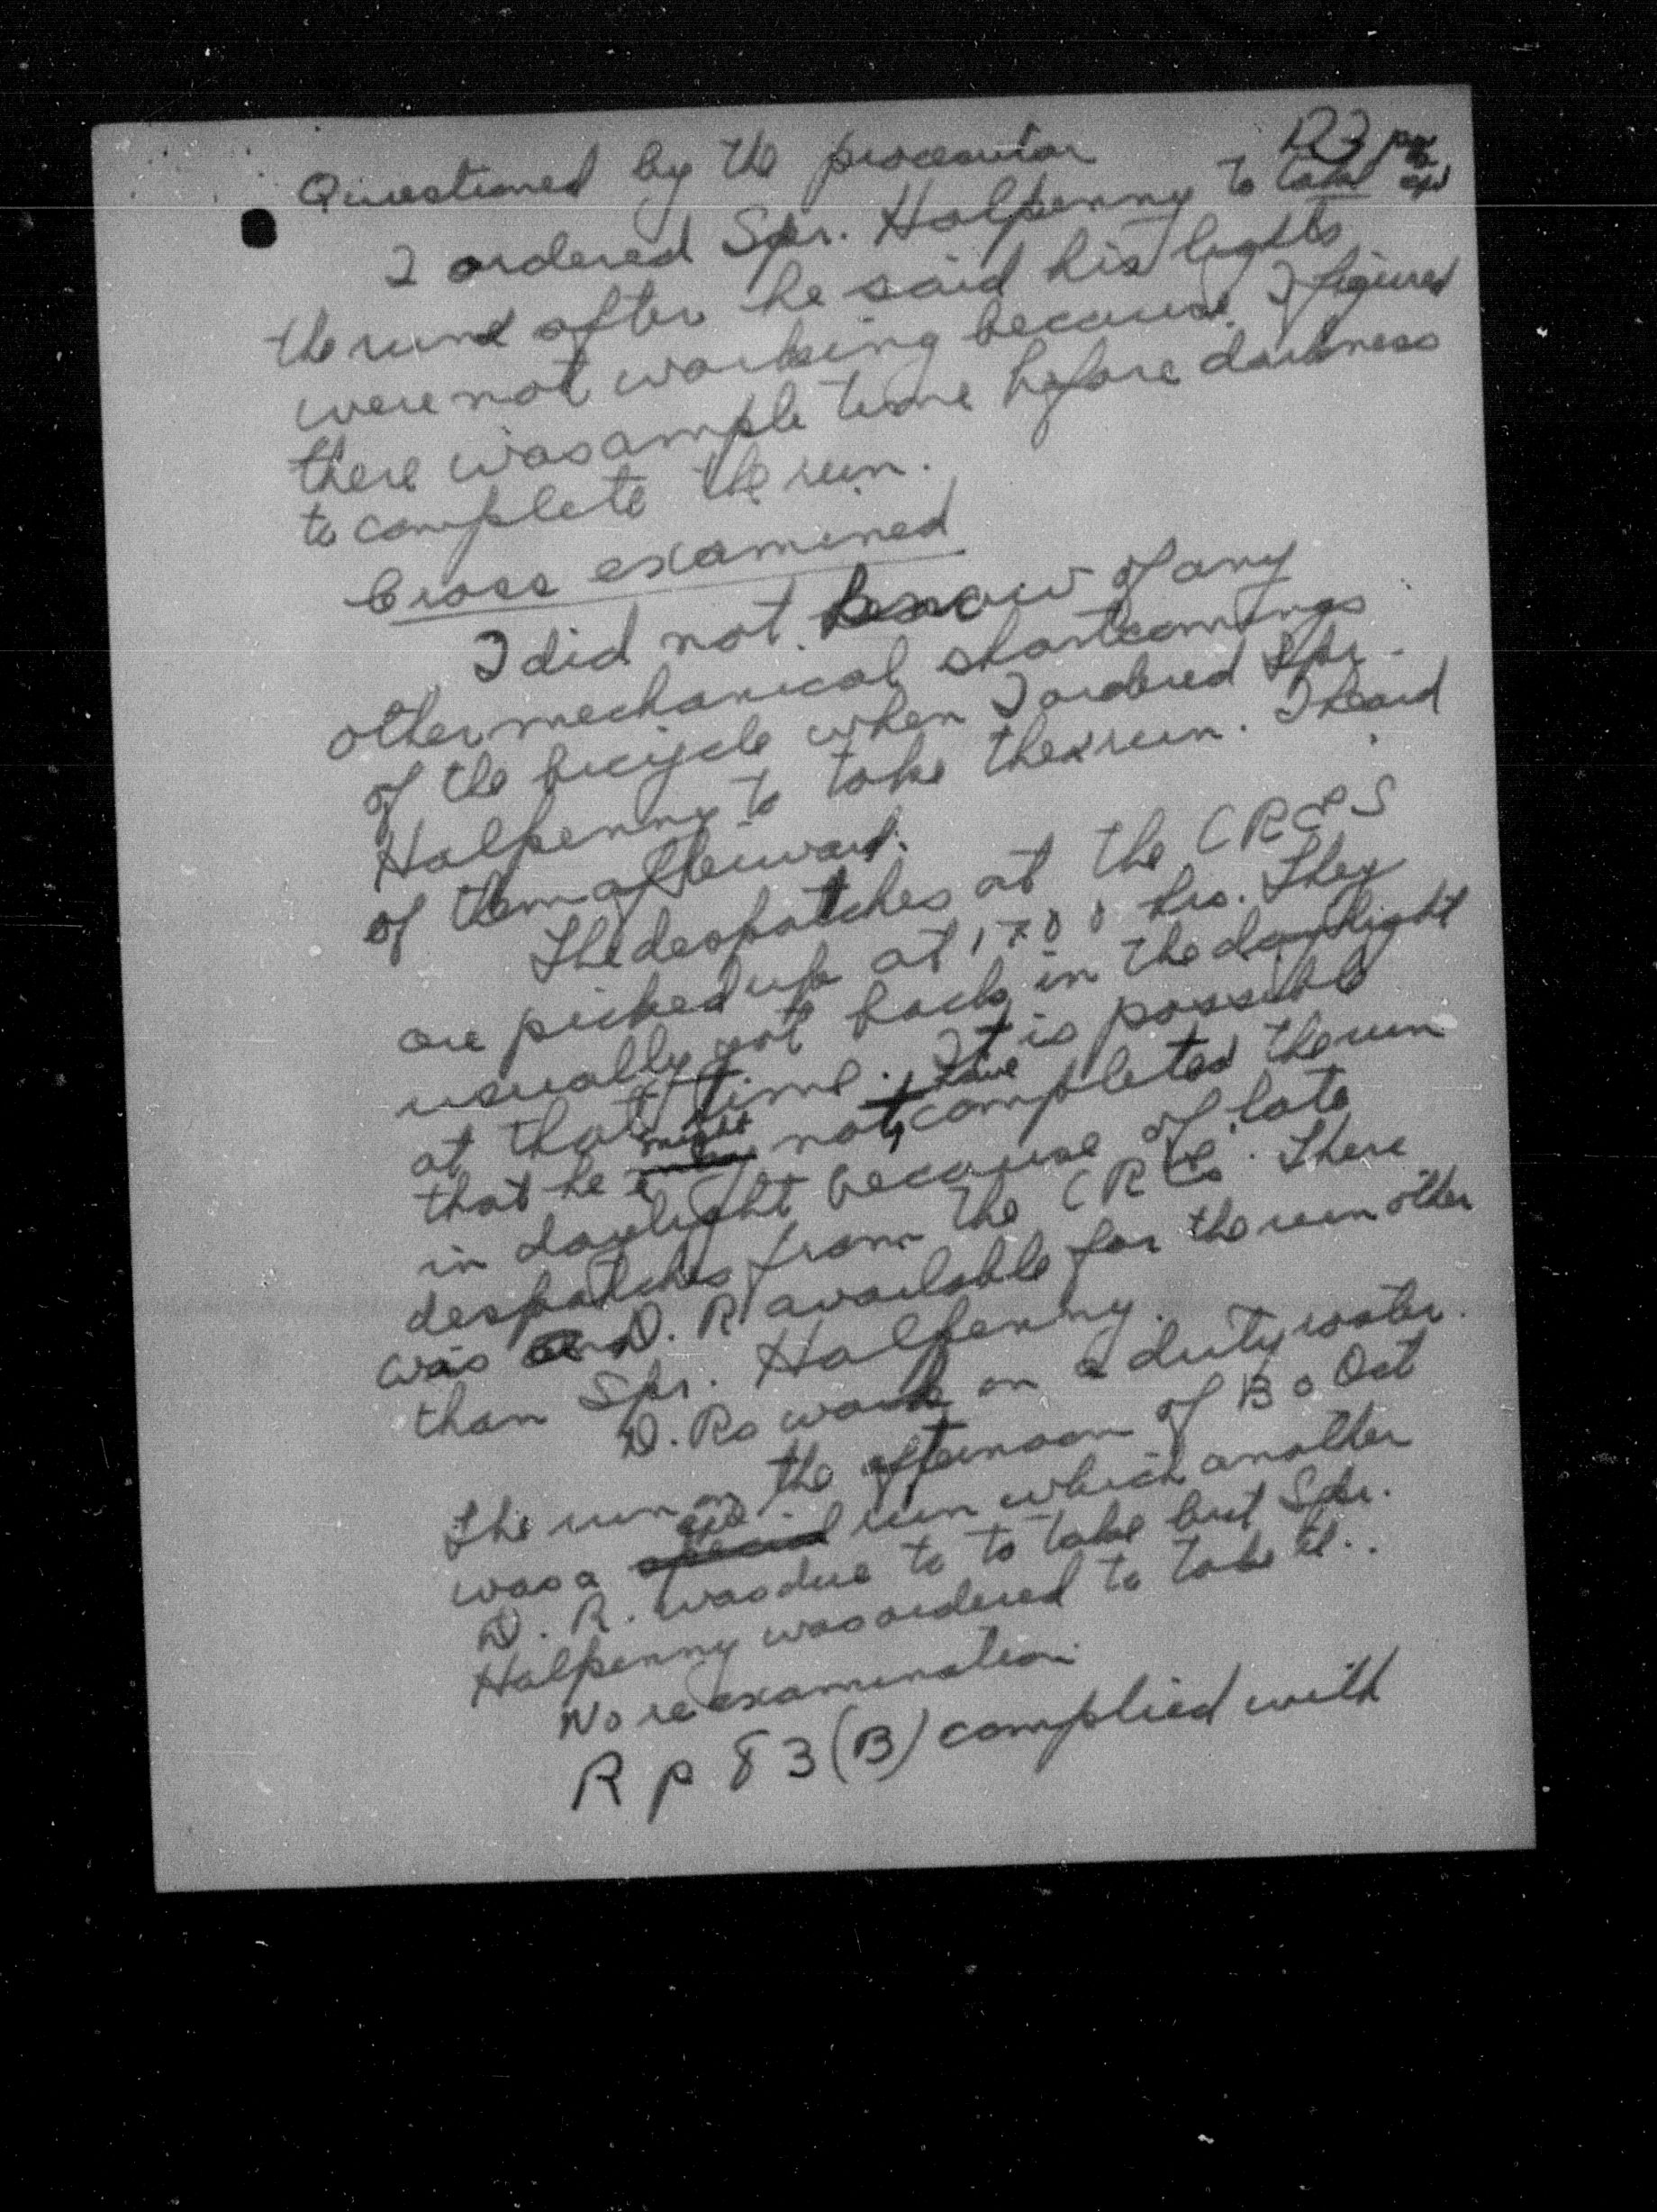 D3
Questioned by the prosecutor
I ordered Spr. Halpenny to take
the run after he said his lights
were not working because I figured
there was ample time before darkness
to complete the run.
Cross examined
I did not know of any
other mechanical shortcomings
of the bicycle when I ordered Spr.
Halpenny to take the run. I heard
of them afterward.
The despatches at the CRES
are picked up at 1700 hrs. They
usually got back in the daylight
at that time. It is possible
that he might not have completed the run
in daylight because of late
despatches from the CREs. There
was D.R available for the run other
than Spr. Halpenny.
D.Rs work on a duty roster.
The run on the afternoon of 30 Oct
was a special run which another
D.R. was due to to take but Spr.
Halpenny was ordered to take it.
No re examination
R P 83(B) complied with